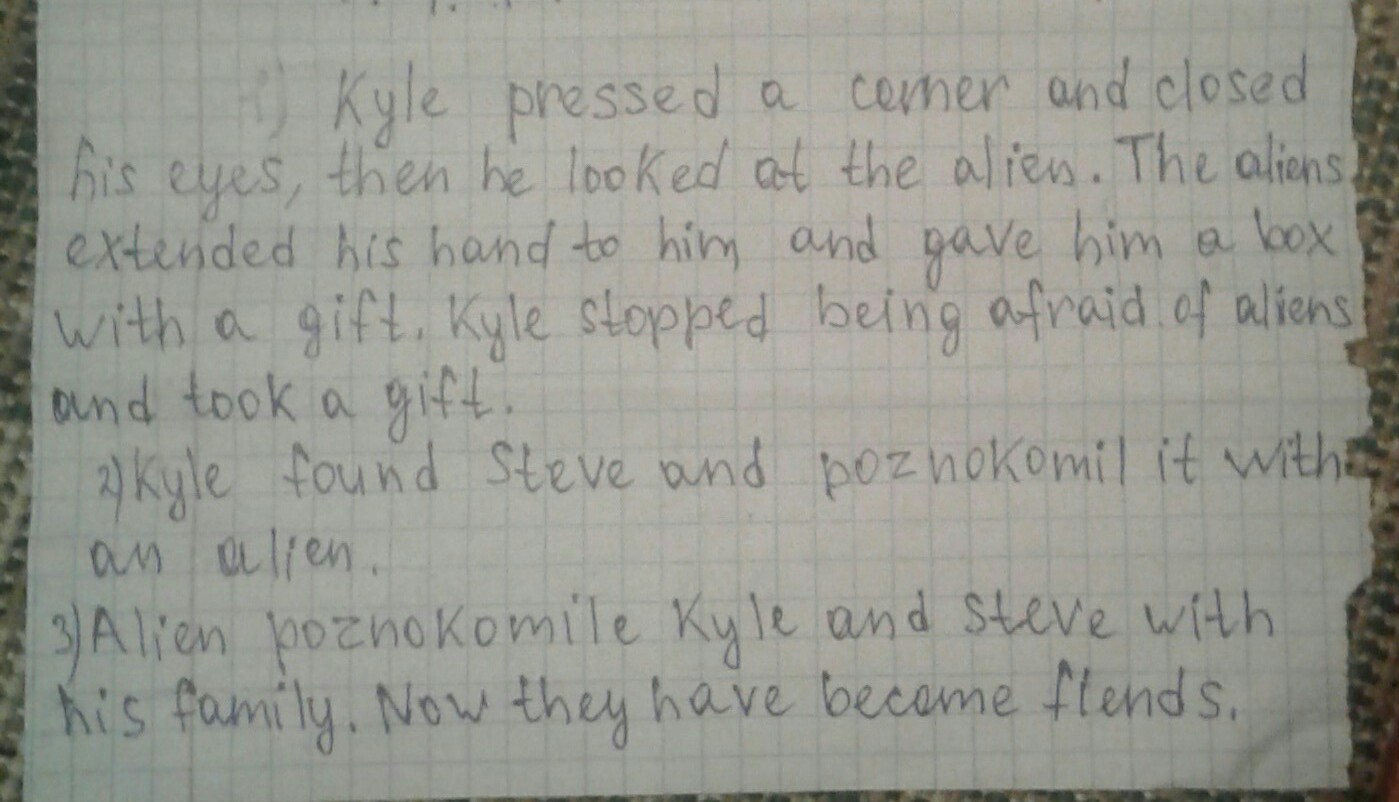 1) Kyle pressed a corner and closed
his eyes, then he looked at the alien. The aliens
extended his hand to him and gave him a box
with a gift. Kyle stopped being afraid of aliens
and took a gift.
2) Kyle found Steve and poznokomil it with
an alien.
3) Alien poznokomile Kyle and Steve with
his family. Now they have become flends.